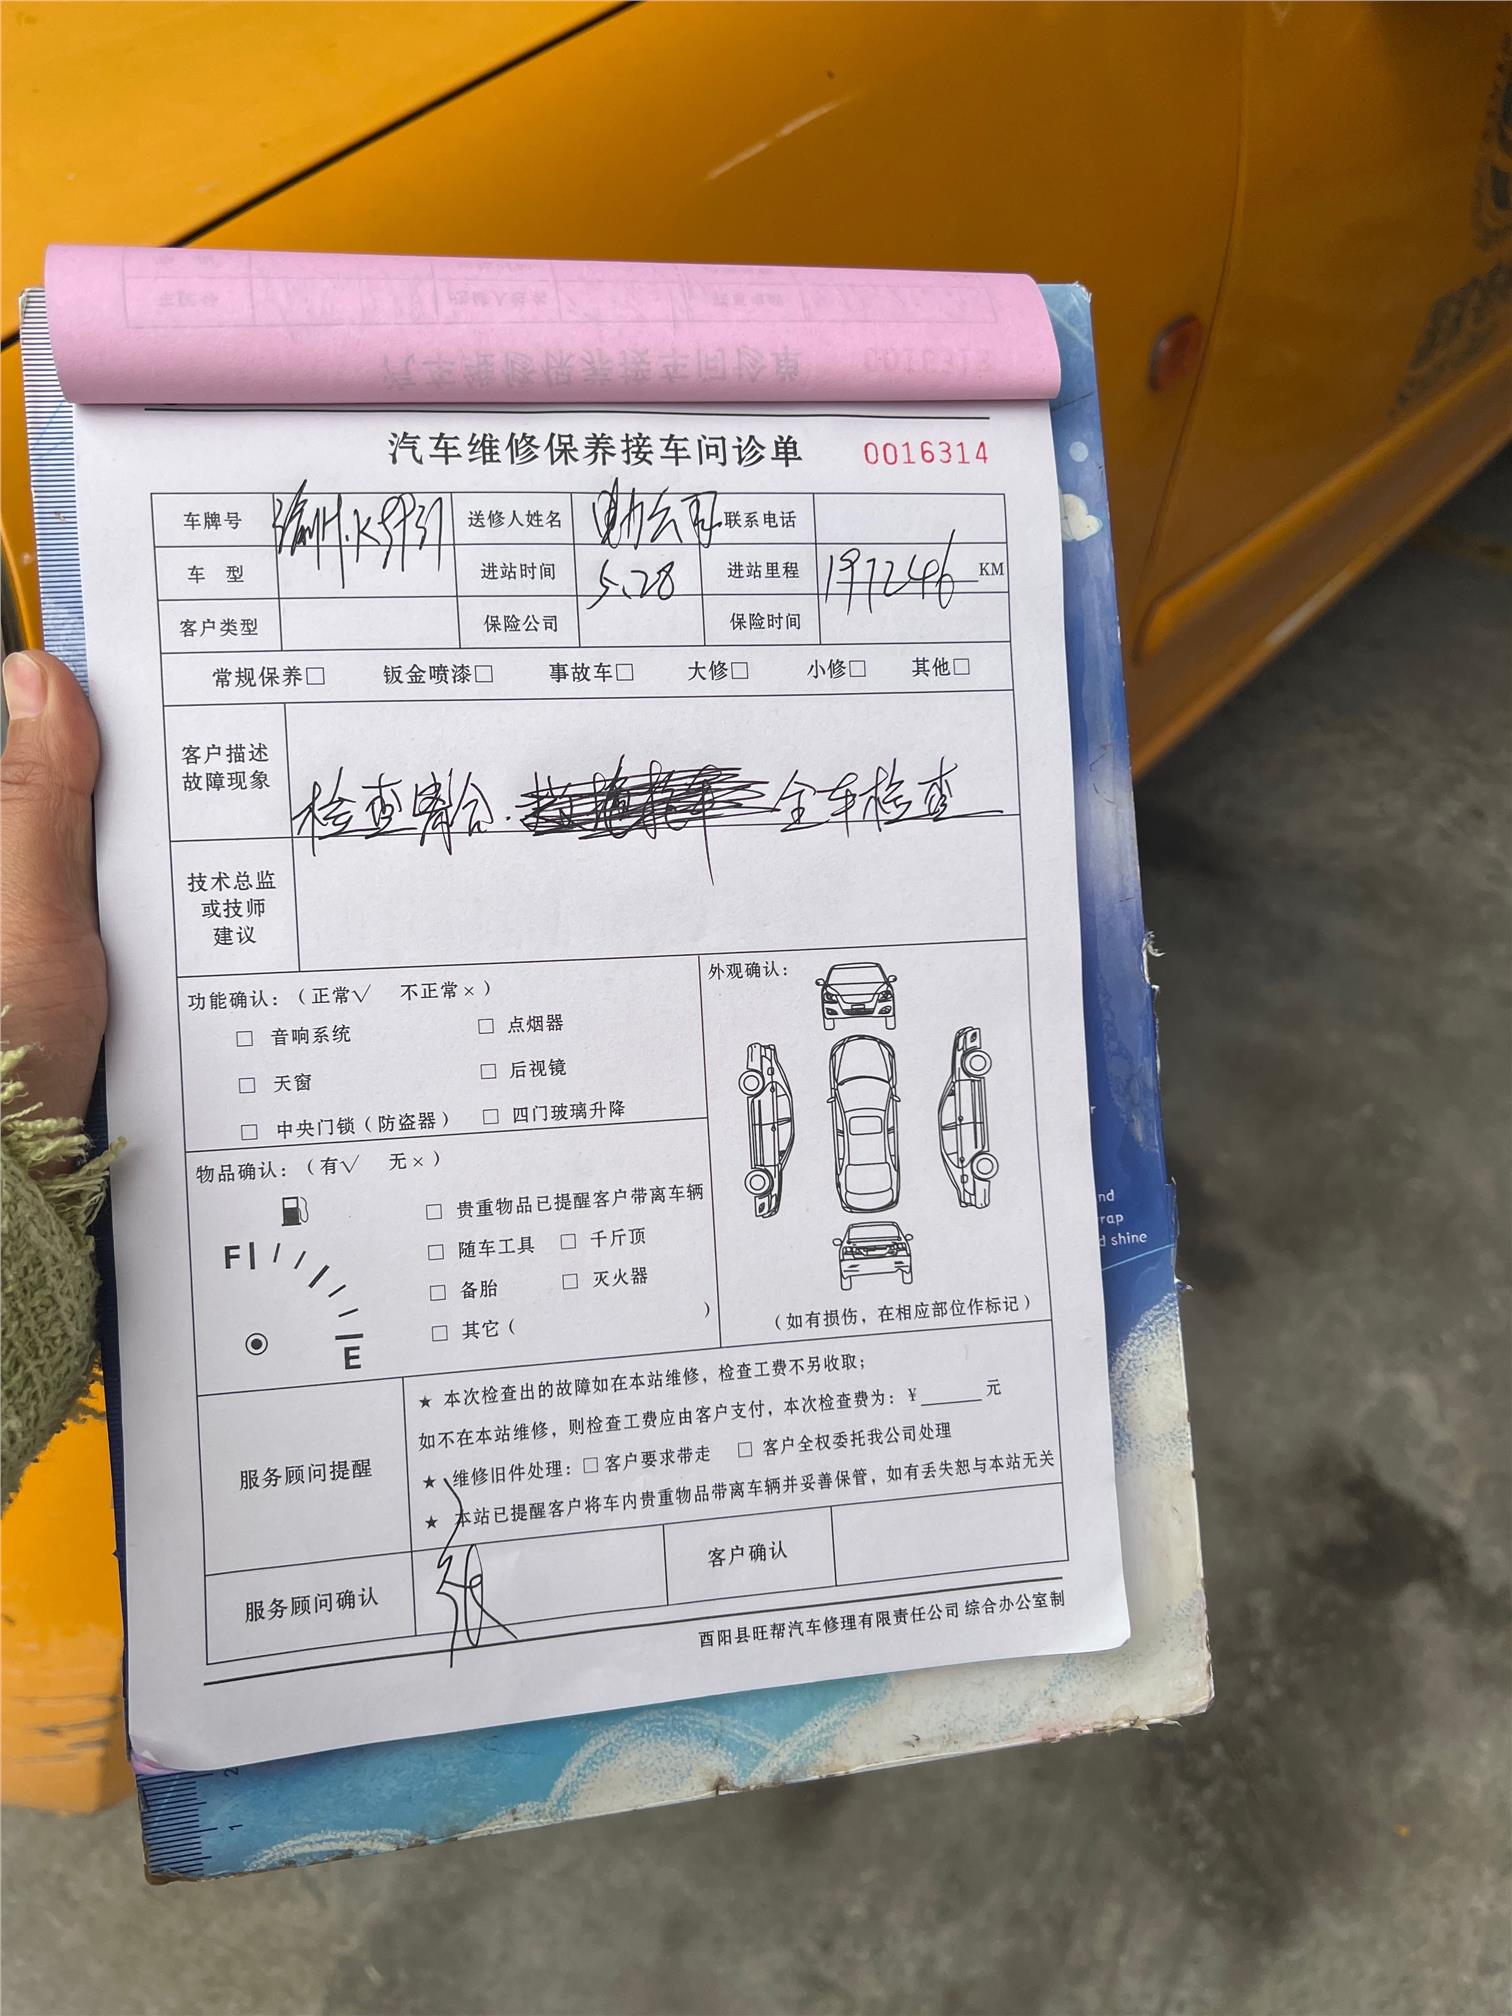 汽车维修保养接车问诊单 0016314
车牌号 送修人姓名 电力公司 联系电话
车 型 进站时间 5.28 进站里程 197246 KM
客户类型 保险公司 保险时间
常规保养□ 钣金喷漆□ 事故车□ 大修□ 小修□ 其他□
客户描述
故障现象
检查离合. 全车检查
技术总监
或技师
建议
功能确认：（正常√ 不正常×）
□ 音响系统 □ 点烟器
□ 天窗 □ 后视镜
□ 中央门锁（防盗器） □ 四门玻璃升降
外观确认：
（如有损伤，在相应部位作标记）
物品确认：（有√ 无×）
F
E
□ 贵重物品已提醒客户带离车辆
□ 随车工具 □ 千斤顶
□ 备胎 □ 灭火器
□ 其它（ ）
服务顾问提醒
★ 本次检查出的故障如在本站维修，检查工费不另收取；
如不在本站维修，则检查工费应由客户支付，本次检查费为：¥______元
★ 维修旧件处理：□ 客户要求带走 □ 客户全权委托我公司处理
★ 本站已提醒客户将车内贵重物品带离车辆并妥善保管，如有丢失恕与本站无关
服务顾问确认 张 客户确认
酉阳县旺帮汽车修理有限责任公司 综合办公室制
nd
rap
d shine